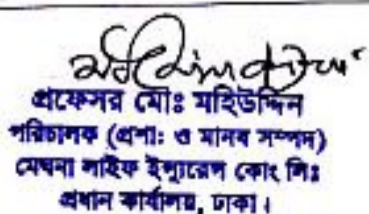 প্রফেসর মোঃ মহিউদ্দিন
পরিচালক (প্রশাঃ ও মানব সম্পদ)
মেঘনা লাইফ ইন্স্যুরেন্স কোং লিঃ
প্রধান কার্যালয়, ঢাকা।